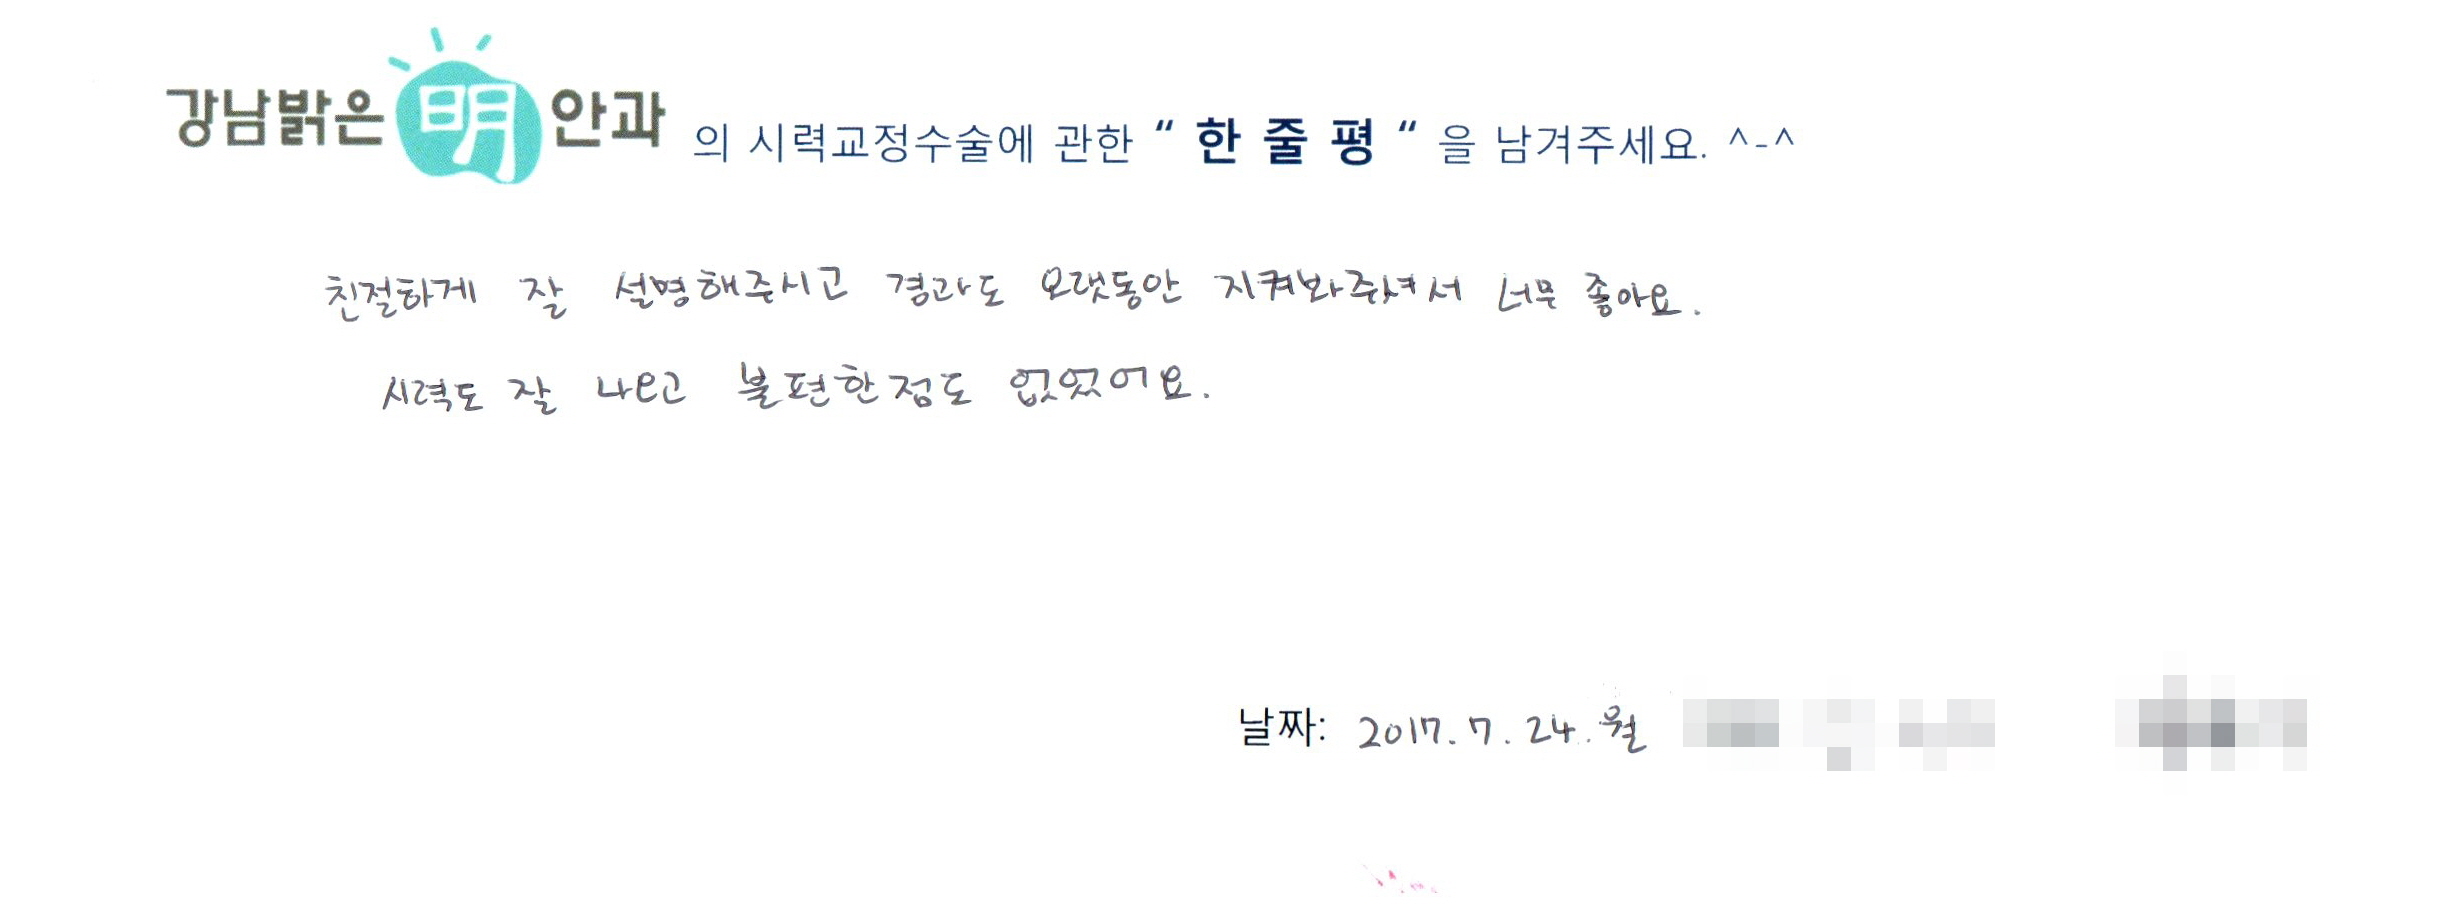 강남밝은 明 안과 의 시력교정수술에 관한 “ 한 줄 평 “ 을 남겨주세요. ^-^
친절하게 잘 설명해주시고 경과도 오랫동안 지켜봐주셔서 너무 좋아요.
시력도 잘 나오고 불편한점도 없었어요.
날짜: 2017. 7. 24. 월